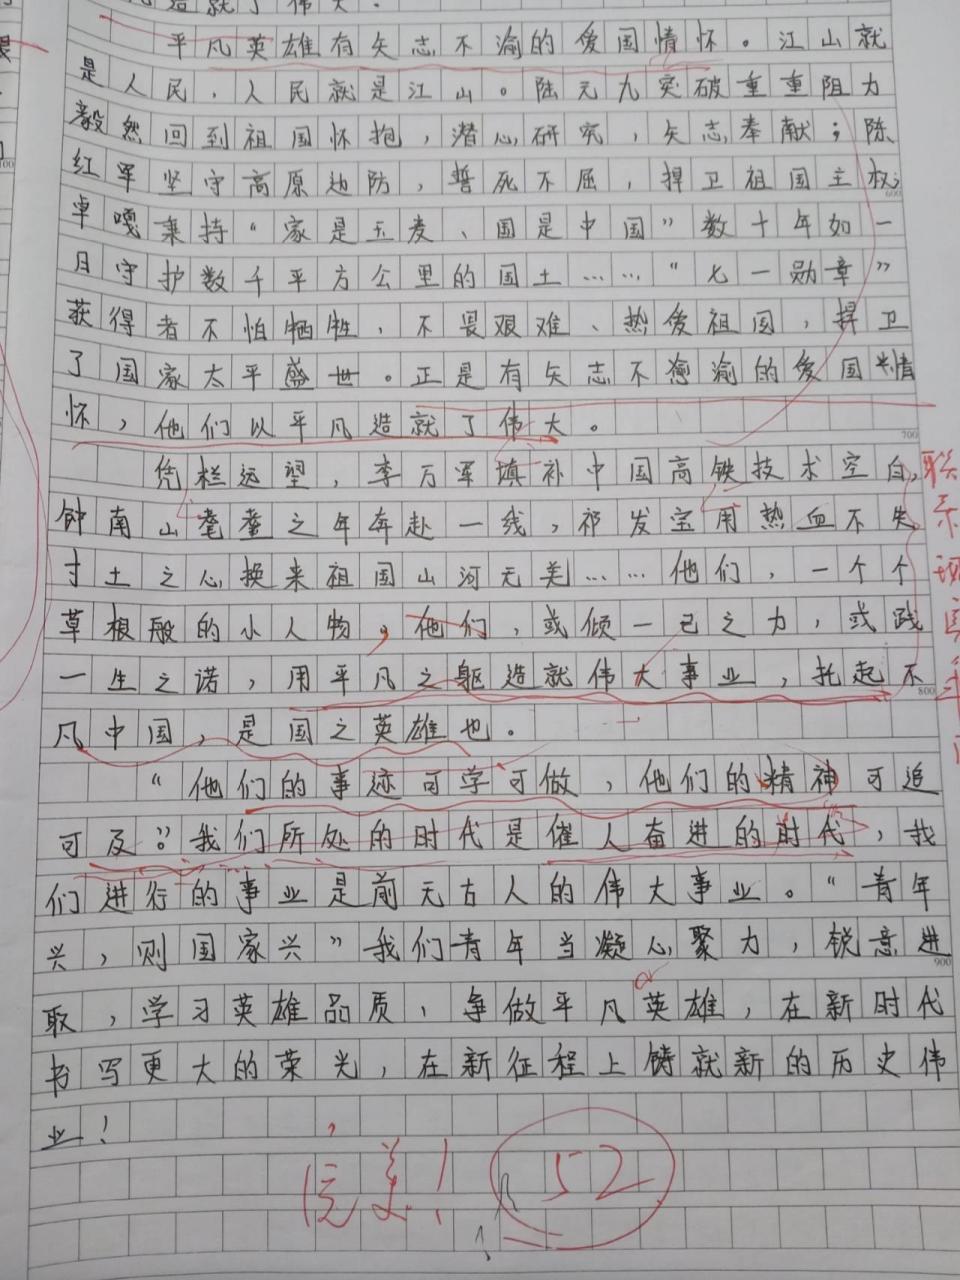 造就了伟大.
平凡英雄有矢志不渝的爱国情怀。江山就
是人民，人民就是江山。陆元九突破重重阻力
毅然回到祖国怀抱，潜心研究，矢志奉献；陈
红军坚守高原边防，誓死不屈，捍卫祖国主权；
600
卓嘎秉持“家是玉麦、国是中国”数十年如一
日守护数千平方公里的国土……“七一勋章”
获得者不怕牺牲，不畏艰难、热爱祖国，捍卫
了国家太平盛世。正是有矢志不渝的爱国情
怀，他们以平凡造就了伟大。
700
凭栏远望，李万军填补中国高铁技术空白，
钟南山耄耋之年奔赴一线，祁发宝用热血不失
寸土之心换来祖国山河无美……他们，一个个
草根般的小人物，他们，或倾一己之力，或践
一生之诺，用平凡之躯造就伟大事业，托起不
800
凡中国，是国之英雄也。
“他们的事迹可学可做，他们的精神可追
可及。”我们所处的时代是催人奋进的时代，我
们进行的事业是前无古人的伟大事业。“青年
兴，则国家兴”我们青年当凝心聚力，锐意进
900
取，学习英雄品质，争做平凡英雄，在新时代
书写更大的荣光，在新征程上铸就新的历史伟
业！
52